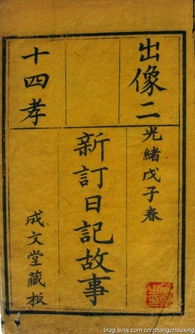 出像二
十四孝
光緒戊子春
新訂日記故事
成文堂藏板
blog.sina.com.cn/zhangzhouxing